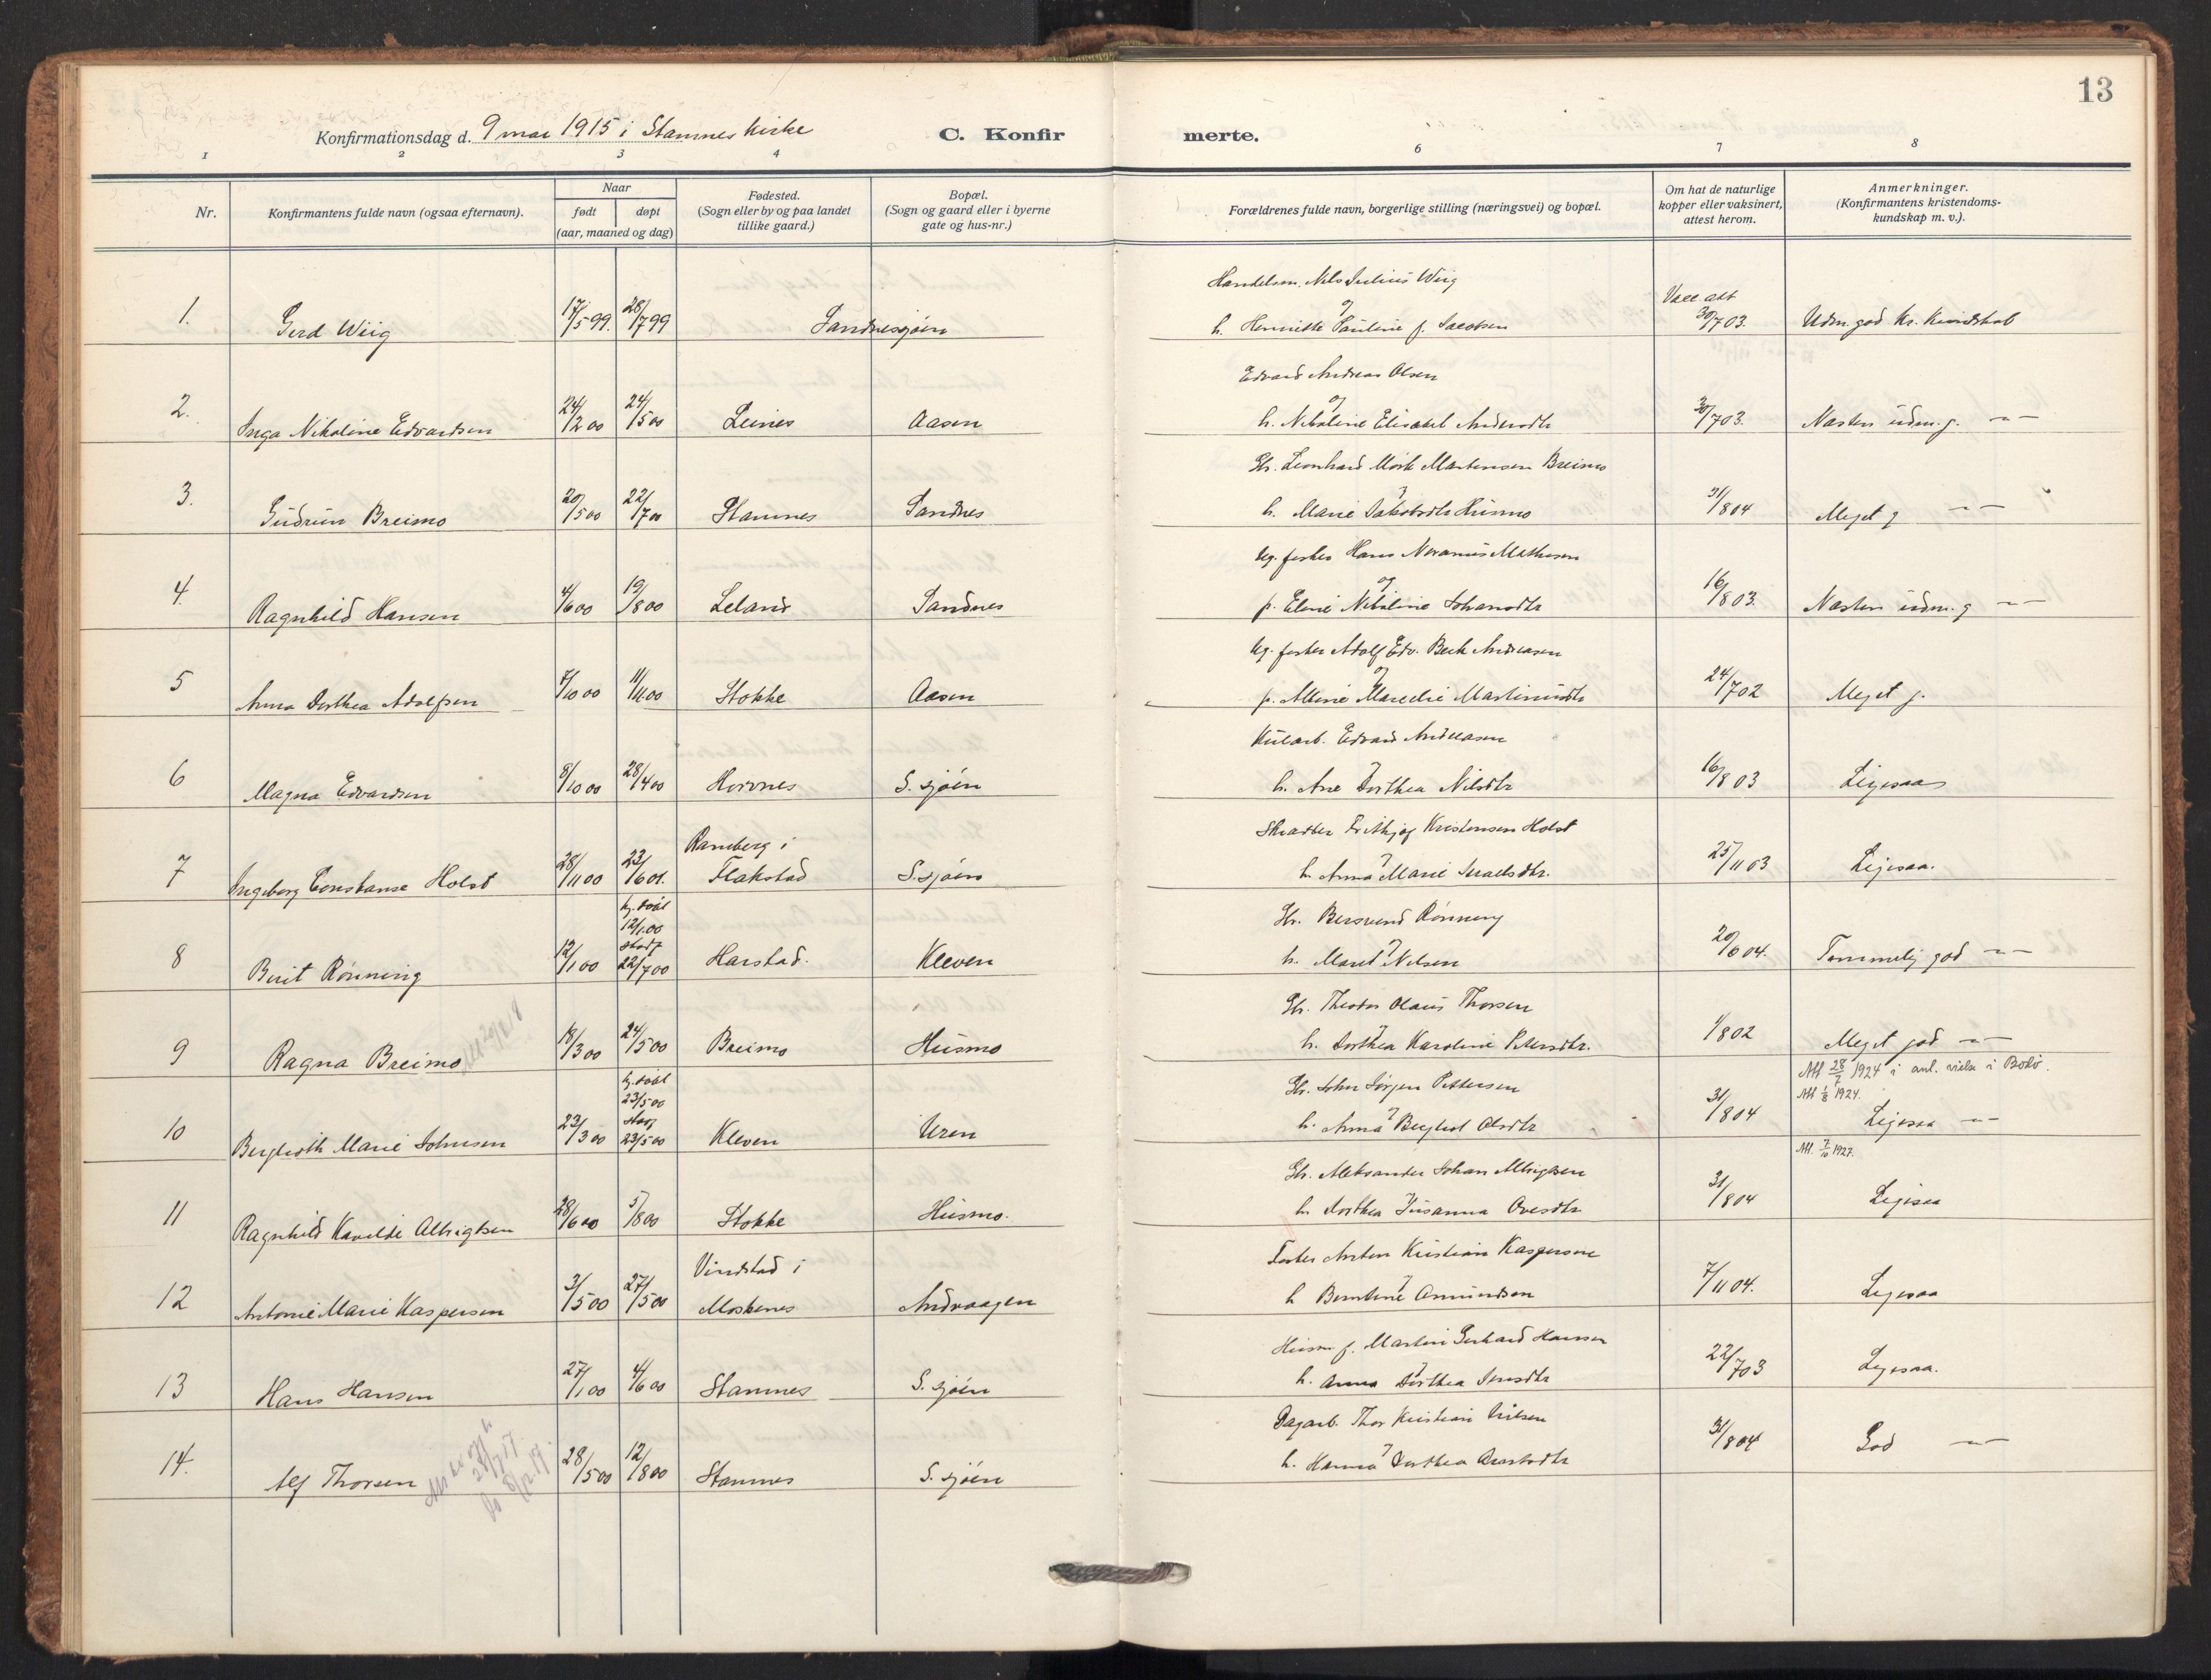 13
Konfirmationsdag d. 9 mai 1915 i Stamnes kirke
C. Konfirmerte.
1 2 3 4 6 7 8
Nr.
Konfirmantens fulde navn (ogsaa efternavn).
Naar
født døpt
(aar, maaned og dag)
Fødested.
(Sogn eller by og paa landet
tillike gaard.)
Bopæl.
(Sogn og gaard eller i byerne
gate og hus-nr.)
Forældrenes fulde navn, borgerlige stilling (næringsvei) og bopæl.
Om hat de naturlige
kopper eller vaksinert,
attest herom.
Anmerkninger.
(Konfirmantens kristendoms-
kundskap m. v.).
Handelsm. Nils Julius Wiig
og
1. Gerd Wiig 17/5 99. 28/7 99 Sandnessjøen h. Henriette Pauline f. Jacobsen Vacc att 30/7 03. Udm. god Kr. Kundskab
Edvard Andreas Olsen
og
2. Inga Nikoline Edvardsen 24/2 00 24/5 00 Leines Aasen h. Nikoline Elisabet Andersdtr 30/7 03. Næsten udm. g. — —
Gbr. Leonhard Mørk Martinsen Breimo
3. Gudrun Breimo 20/5 00 22/7 00 Stamnes Sandnes h. Marie Jakobsdtr Husmo 31/8 04 Meget g — —
Ug. fisker Hans Neranius Mathisen
og
4. Ragnhild Hansen 4/6 00 19/8 00 Leland Sandnes p. Eline Nikoline Johansdtr 16/8 03. Næsten udm. g — —
Ug. fisker Adolf Edv. Beck Andreasen
og
5 Anna Dorthea Adolfsen 7/10 00 11/11 00 Stokke Aasen p. Albine Marselie Martinusdtr 24/7 02 Meget g.
Kularb. Edvard Andreasen
6 Magna Edvardsen 8/10 00 28/4 00 Horvnes S. sjøen h. Ane Dorthea Nilsdtr 16/8 03 Ligesaa
Skrædder Frithjof Kristensen Holst
Ramberg i
7 Ingeborg Constanse Holst 28/11 00 23/6 01. Flakstad S. sjøen h. Anna Marie Israelsdtr. 25/11 03 Ligesaa.
Gbr. Bersvend Rønning
hj. døbt
12/1 00
stadf
8 Berit Rønning 12/1 00 22/7 00 Harstad. Kleven h. Maret Nilsen 20/6 04. Temmelig god — —
Gbr. Theodor Olaus Thorsen
9 Ragna Breimo 18/3 00 24/5 00 Breimo Husmo h. Dorthea Karoline Petersdtr. 1/8 02 Meget god — —
Att 28/7 1924 i anl. vielse i Bodø.
Att 1/8 1924.
Gbr. John Jørgen Pettersen
hj. døbt
23/5 00
stadf
10 Berglioth Marie Johnsen 23/3 00 23/5 00 Kleven Uren h. Anna Bergitte Olsdtr 31/8 04 Ligesaa — —
Att. 7/10 1927.
Gbr. Aleksander Johan Albrigtsen
11 Ragnhild Kavelde Albrigtsen 28/6 00 5/8 00 Stokke Husmo. h. Dorthea Susanna Ovesdtr 31/8 04 Ligesaa
Fisker Anton Kristian Kaspersen
Vindstad i
12 Antonie Marie Kaspersen 3/5 00 27/5 00 Moskenes Andvaagen h Berntine Amundsen 7/11 04. Ligesaa
Husm f. Martin Gerhard Hansen
13 Hans Hansen 27/1 00 4/6 00 Stamnes S. sjøen h. Anna Dorthea Jensdtr 22/7 03 Ligesaa.
Dagarb. Thor Kristian Nilsen
14. Alf Thorsen 28/5 00 12/8 00 Stamnes S. sjøen h. Hanna Dorthea 31/8 04 God — —